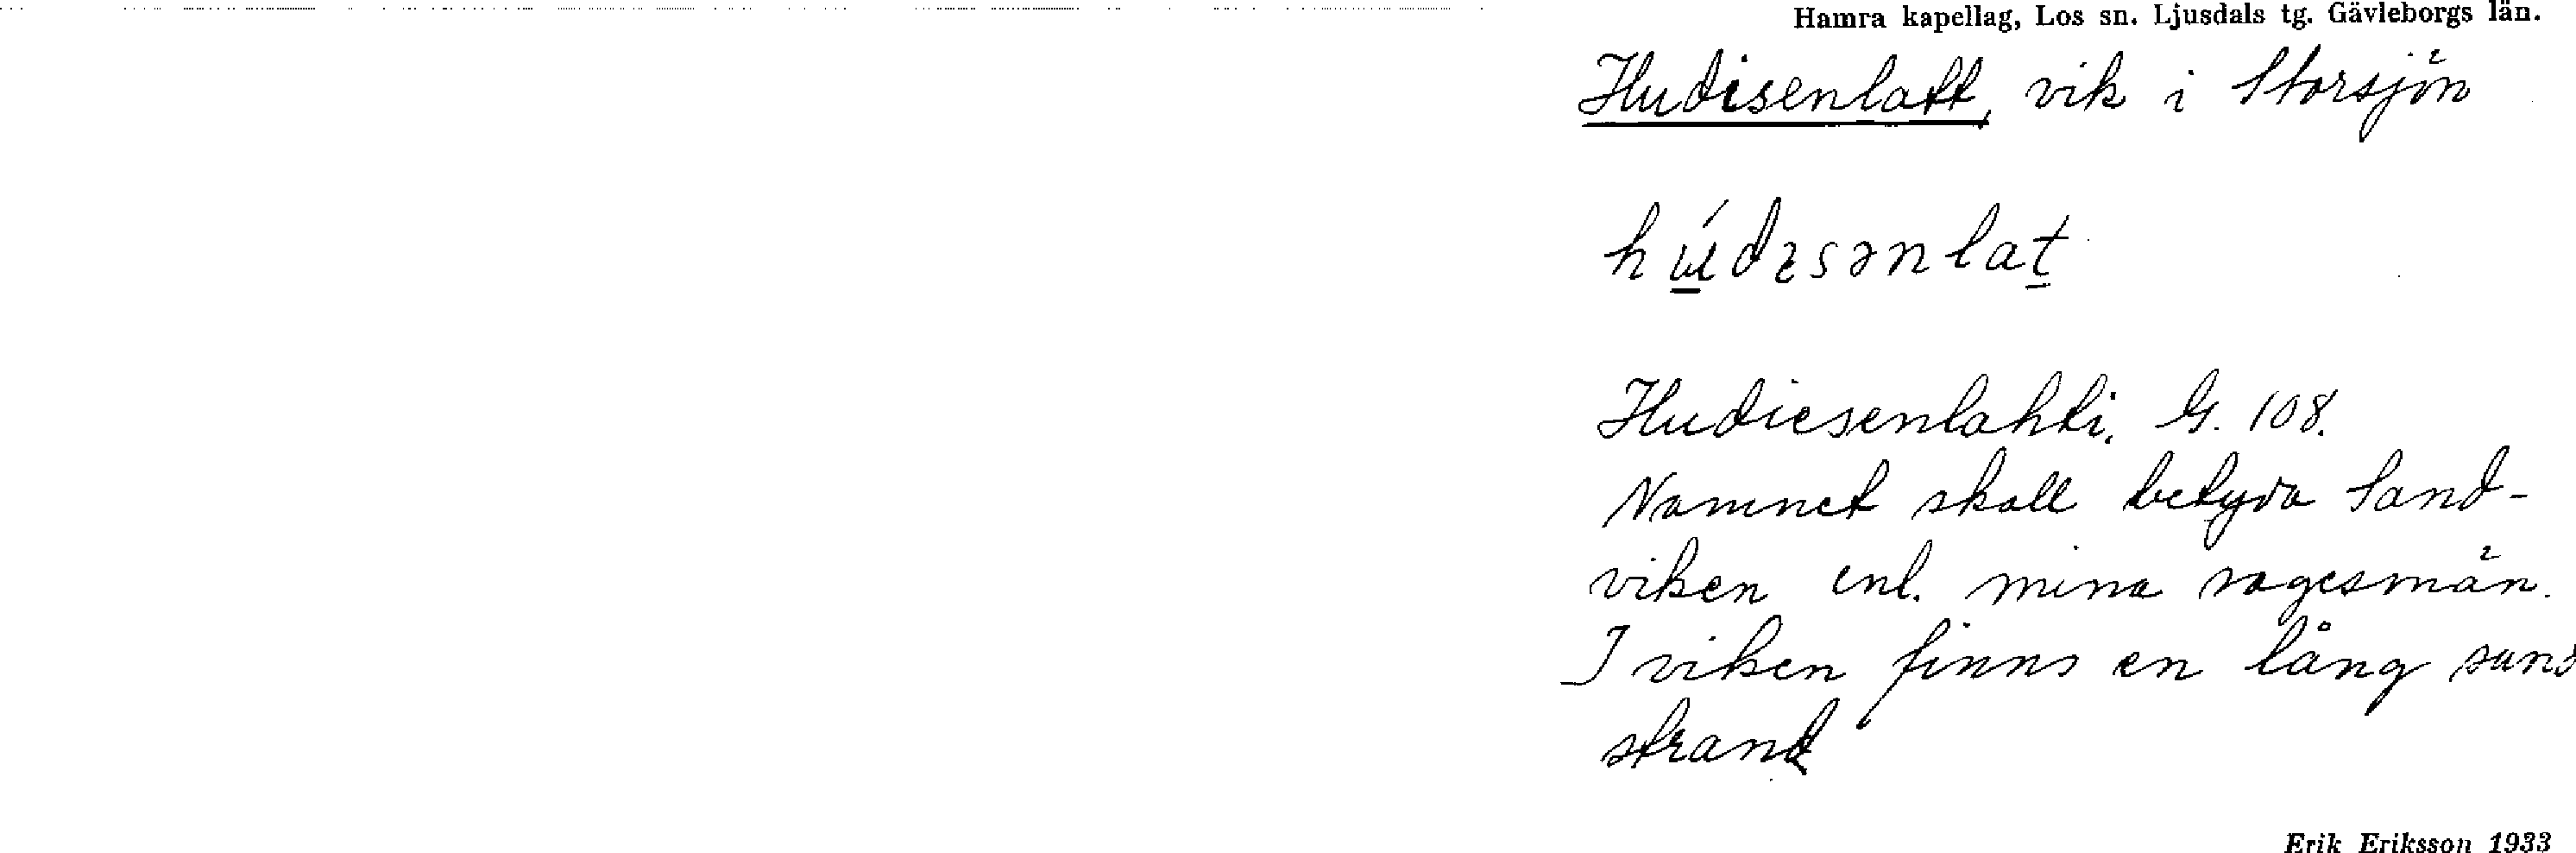 Hamra kapellag, Los sn. Ljusdals tg. Gävleborgs län.
Hudisenlatt, vik i Storsjön
Hudiesenlahti. G. 108.
Namnet skall betyda Sand-
viken enl. mina sagesmän.
I viken finns en lång sand
strand
Erik Eriksson 1933